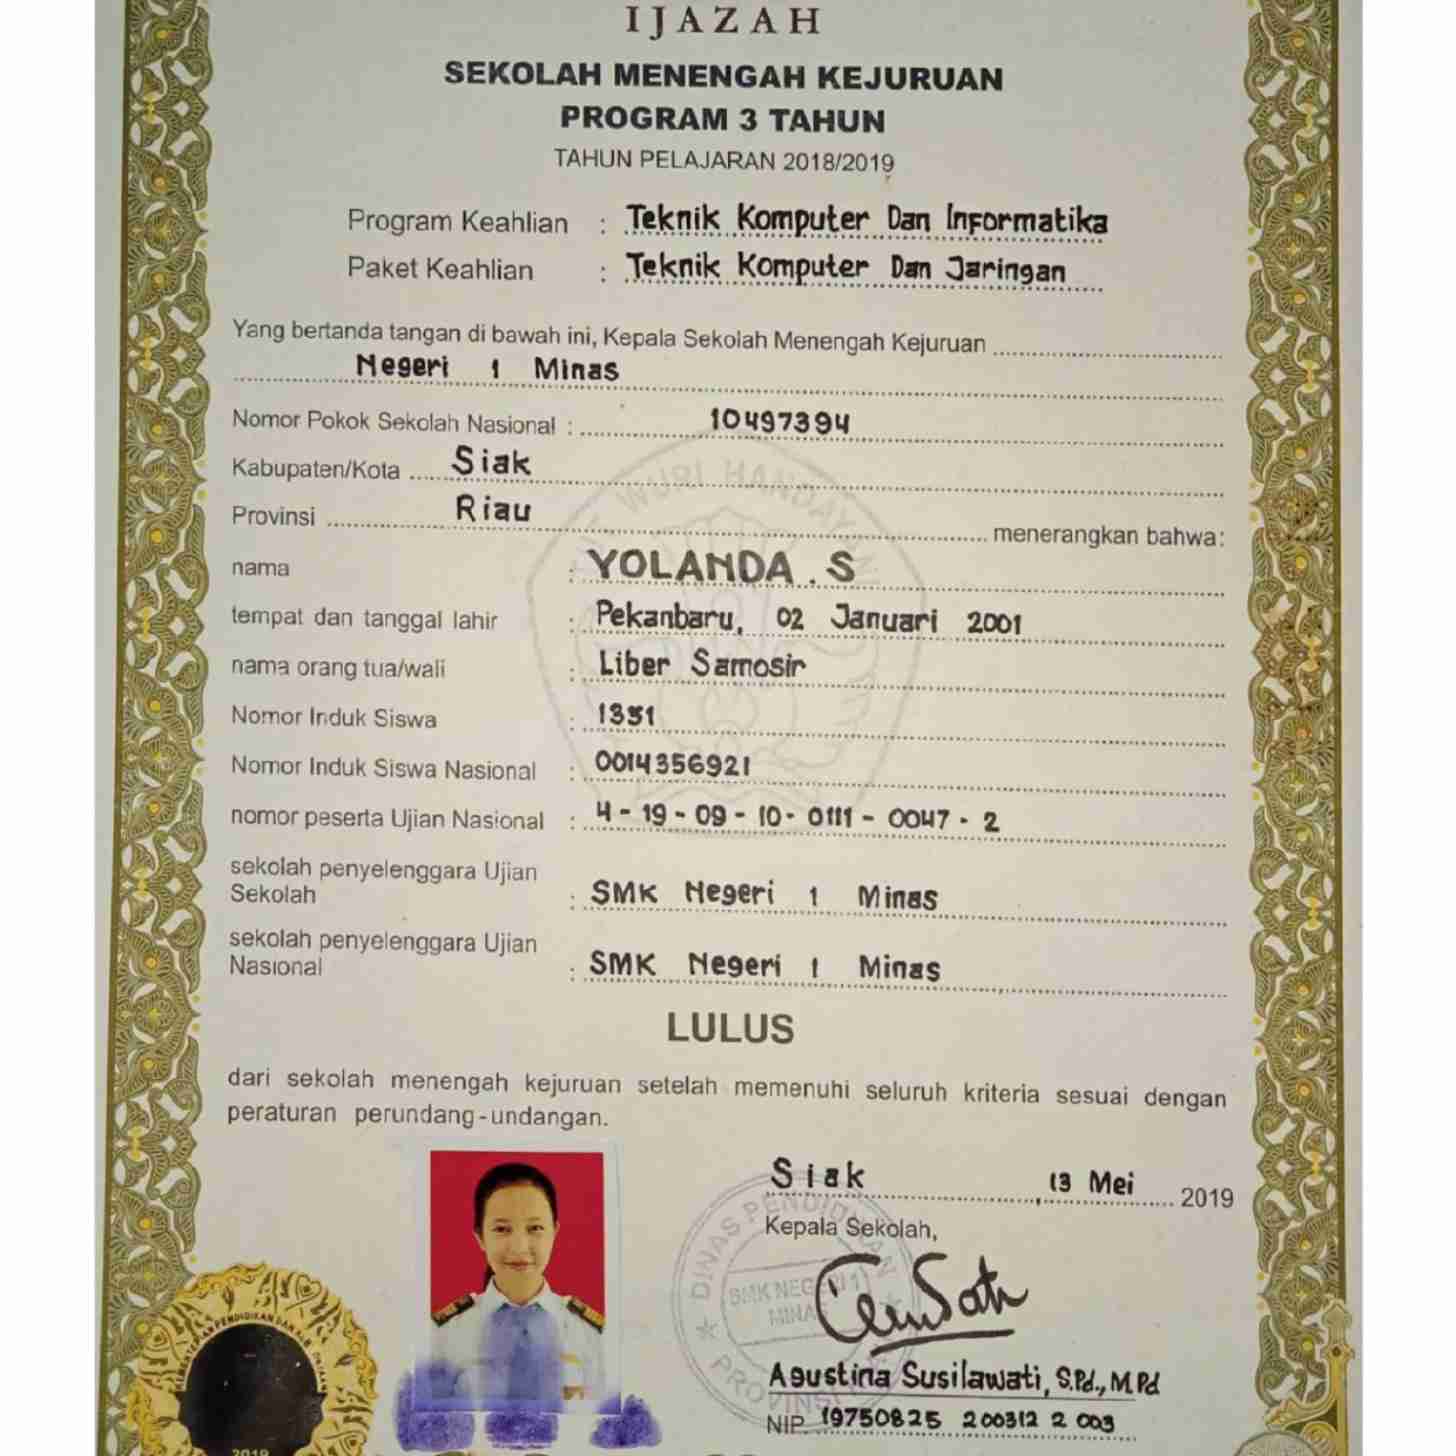 IJAZAH
SEKOLAH MENENGAH KEJURUAN
PROGRAM 3 TAHUN
TAHUN PELAJARAN 2018/2019
Program Keahlian : Teknik Komputer Dan Informatika
Paket Keahlian : Teknik Komputer Dan Jaringan
Yang bertanda tangan di bawah ini, Kepala Sekolah Menengah Kejuruan
Negeri 1 Minas
Nomor Pokok Sekolah Nasional : 10497394
Kabupaten/Kota Siak
Provinsi Riau menerangkan bahwa:
nama : YOLANDA . S
tempat dan tanggal lahir : Pekanbaru, 02 Januari 2001
nama orang tua/wali : Liber Samosir
Nomor Induk Siswa : 1351
Nomor Induk Siswa Nasional : 0014356921
nomor peserta Ujian Nasional : 4 - 19 - 09 - 10 - 0111 - 0047 - 2
sekolah penyelenggara Ujian
Sekolah : SMK Negeri 1 Minas
sekolah penyelenggara Ujian
Nasional : SMK Negeri 1 Minas
LULUS
dari sekolah menengah kejuruan setelah memenuhi seluruh kriteria sesuai dengan
peraturan perundang-undangan.
Siak, 13 Mei 2019
Kepala Sekolah,
DINAS PENDIDIKAN
SMK NEGERI 1
MINAS
PROVINSI
Agustina Susilawati, S.Pd., M.Pd
NIP 19750825 200312 2 003
2019